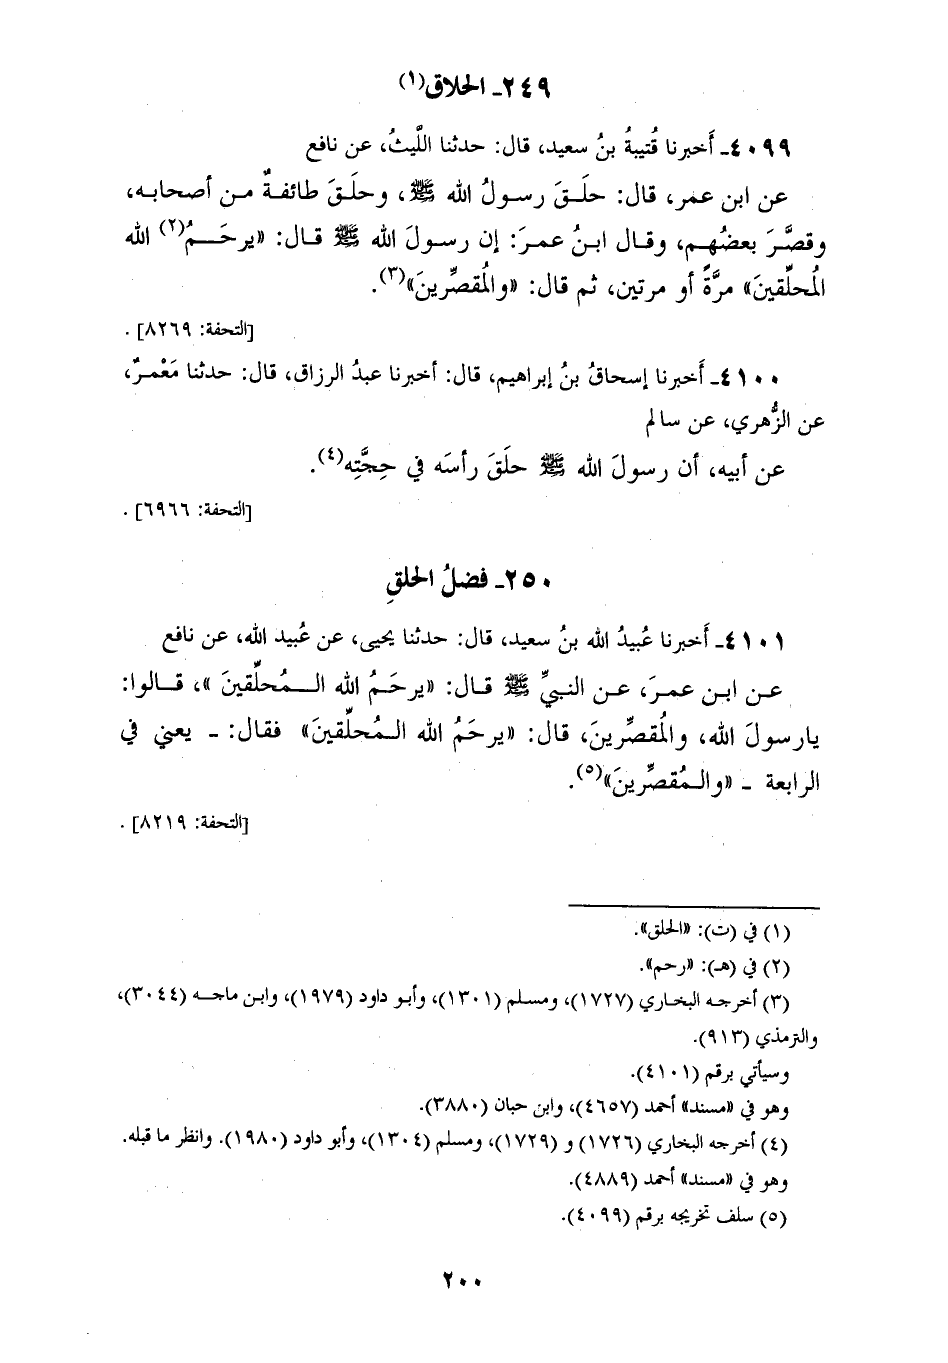 ٢٤٩ـ الحلاق(١)
٤٠٩٩ـ أَخبرنا قُتيبةُ بنُ سعيد، قال: حدثنا اللَّيثُ، عن نافع
عن ابن عمر، قال: حلَـقَ رسـولُ الله ﷺ، وحلَـقَ طائفـةٌ مـن أصحابـه،
وقصَّرَ بعضُهـم، وقـال ابـنُ عمـرَ: إن رسـولَ الله ﷺ قـال: «يرحَـمُ(٢) الله
المُحلِّقينَ» مرَّةً أو مرتين، ثم قال: «والمُقصِّرينَ»(٣).
[التحفة: ٨٢٦٩] .
٤١٠٠ـ أَخبرنا إسحاقُ بنُ إبراهيم، قال: أخبرنا عبدُ الرزاق، قال: حدثنا مَعْمـرٌ،
عن الزُّهري، عن سالم
عن أبيه، أن رسولَ الله ﷺ حلَقَ رأسَه في حِجَّتِه(٤).
[التحفة: ٦٩٦٦] .
٢٥٠ـ فضلُ الحلقِ
٤١٠١ـ أَخبرنا عُبيدُ الله بنُ سعيد، قال: حدثنا يحيى، عن عُبيد الله، عن نافع
عـن ابـن عمـرَ، عـن النبيِّ ﷺ قـال: «يرحَـمُ الله الـمُحلِّقينَ »، قـالوا:
يارسولَ الله، والمُقصِّرينَ، قال: «يرحَمُ الله الـمُحلِّقينَ» فقال: ـ يعني في
الرابعة ـ «والـمُقصِّرينَ»(٥).
[التحفة: ٨٢١٩] .
(١) في (ت): «الحلق».
(٢) في (هـ): «رحم».
(٣) أخرجه البخاري (١٧٢٧)، ومسلم (١٣٠١)، وأبو داود (١٩٧٩)، وابن ماجـه (٣٠٤٤)،
والترمذي (٩١٣).
وسيأتي برقم (٤١٠١).
وهو في «مسند» أحمد (٤٦٥٧)، وابن حبان (٣٨٨٠).
(٤) أخرجه البخاري (١٧٢٦) و (١٧٢٩)، ومسلم (١٣٠٤)، وأبو داود (١٩٨٠). وانظر ما قبله.
وهو في «مسند» أحمد (٤٨٨٩).
(٥) سلف تخريجه برقم (٤٠٩٩).
٢٠٠